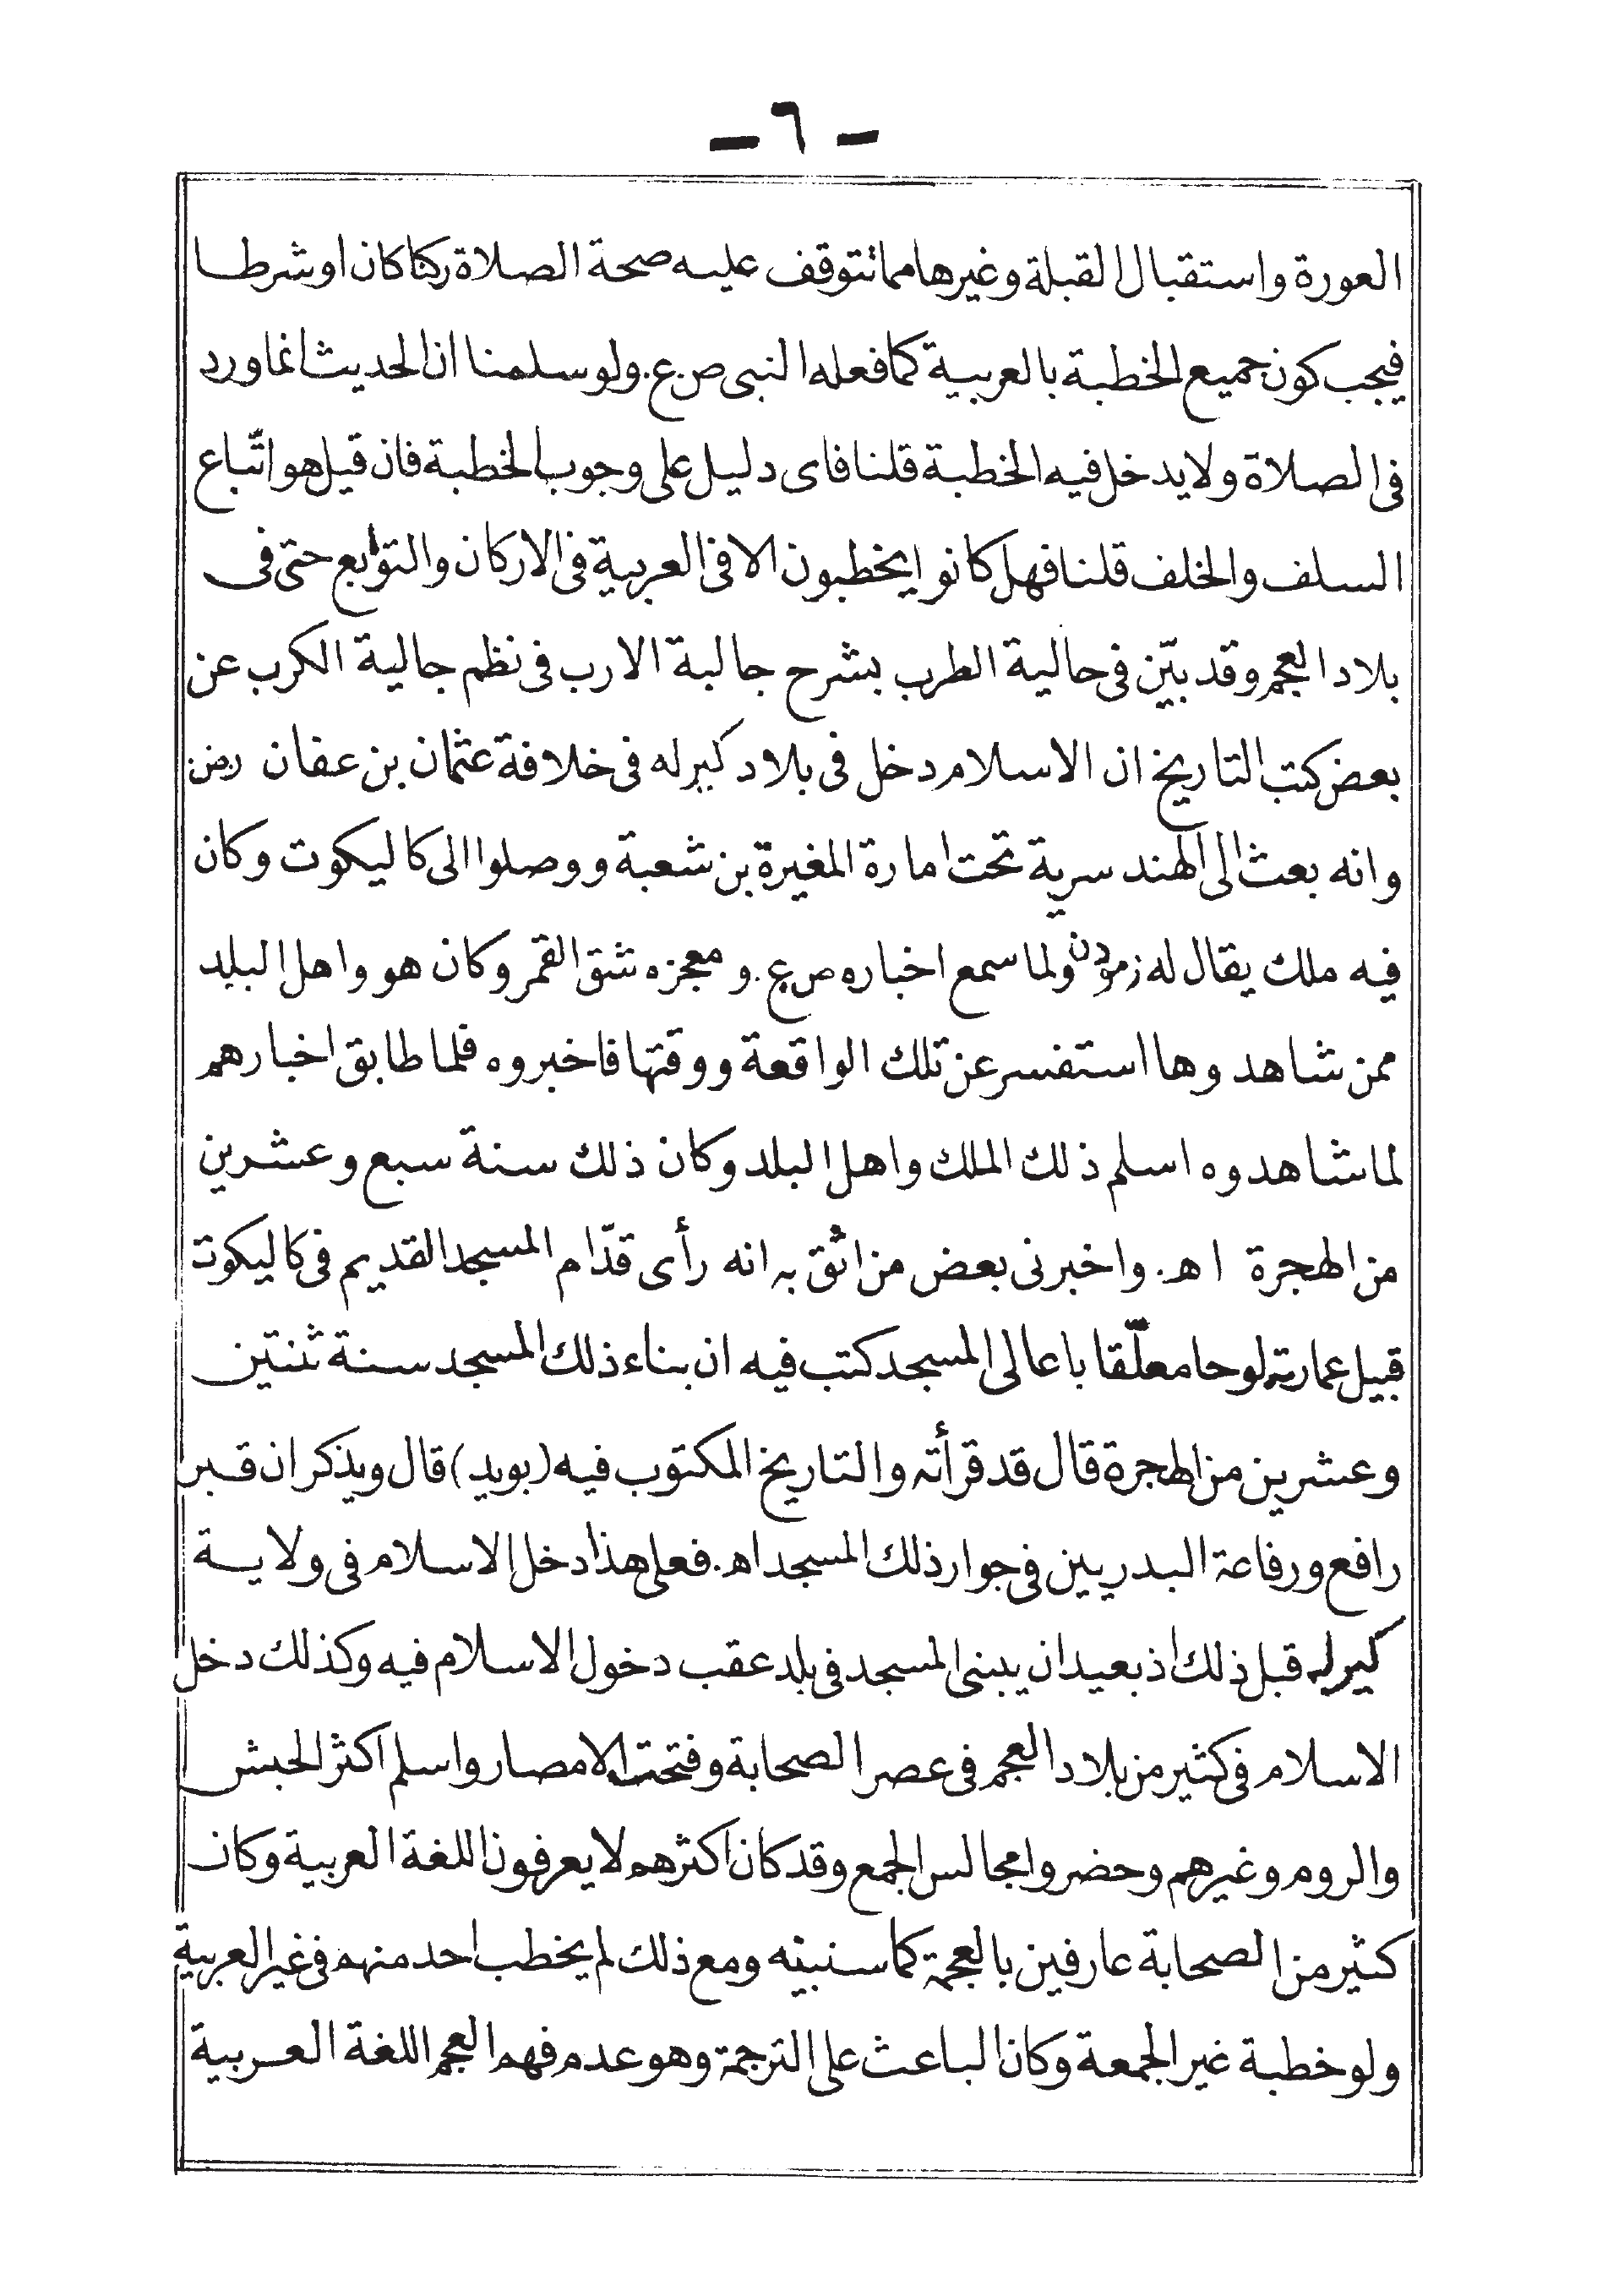 - ٦ -
العورة واستقبال القبلة وغيرها مما تتوقف عليه صحة الصلاة ركنا كان او شرطا
فيجب كون جميع الخطبة بالعربية كما فعله النبى ص.ع. ولو سلمنا ان الحديث انما ورد
فى الصلاة ولا يدخل فيه الخطبة قلنا فاى دليل على وجوب الخطبة فان قيل هو اتّباع
السلف والخلف قلنا فهل كانوا يخطبون الا فى العربية فى الاركان والتوابع حتى فى
بلاد العجم وقد بيّن فى حالية الطرب بشرح جالبة الارب فى نظم جالية الكرب عن
بعض كتب التاريخ ان الاسلام دخل فى بلاد كيرله فى خلافة عثمان بن عفان رض.
وانه بعث الى الهند سرية تحت امارة المغيرة بن شعبة ووصلوا الى كاليكوت وكان
فيه ملك يقال له ولما سمع اخباره ص.ع. ومعجزه شق القمر وكان هو واهل البلد
ممن شاهدوها استفسر عن تلك الواقعة ووقتها فاخبروه فلما طابق اخبارهم
لما شاهدوه اسلم ذلك الملك واهل البلد وكان ذلك سنة سبع وعشرين
من الهجرة اهـ. واخبرنى بعض من اثق به انه رأى قدّام المسجد القديم فى كاليكوت
قبيل عمارته لوحا معلّقا باعالى المسجد كتب فيه ان بناء ذلك المسجد سنة ثنتين
وعشرين من الهجرة قال قد قرأته والتاريخ المكتوب فيه (بويد) قال ويذكر ان قبر
رافع ورفاعة البدريين فى جوار ذلك المسجد اهـ. فعلى هذا دخل الاسلام فى ولاية
كيرله قبل ذلك اذ بعيد ان يبنى المسجد فى بلد عقب دخول الاسلام فيه وكذلك دخل
الاسلام فى كثير من بلاد العجم فى عصر الصحابة وفتحت الامصار واسلم اكثر الحبش
والروم وغيرهم وحضروا مجالس الجمع وقد كان اكثرهم لا يعرفون اللغة العربية وكان
كثير من الصحابة عارفين بالعجمة كما سنبينه ومع ذلك لم يخطب احد منهم فى غير العربية
ولو خطبة غير الجمعة وكان الباعث على الترجمة وهو عدم فهم العجم اللغة العربية